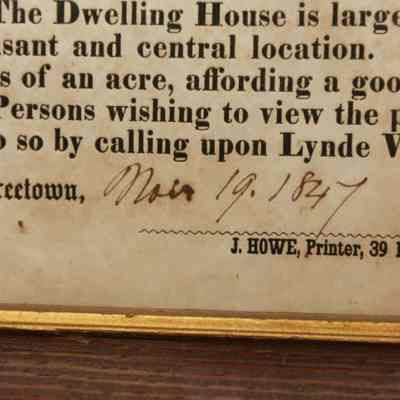 The Dwelling House is large
sant and central location.
s of an acre, affording a goo
Persons wishing to view the p
o so by calling upon Lynde V
reetown, Nov 19. 1847
J. HOWE, Printer, 39